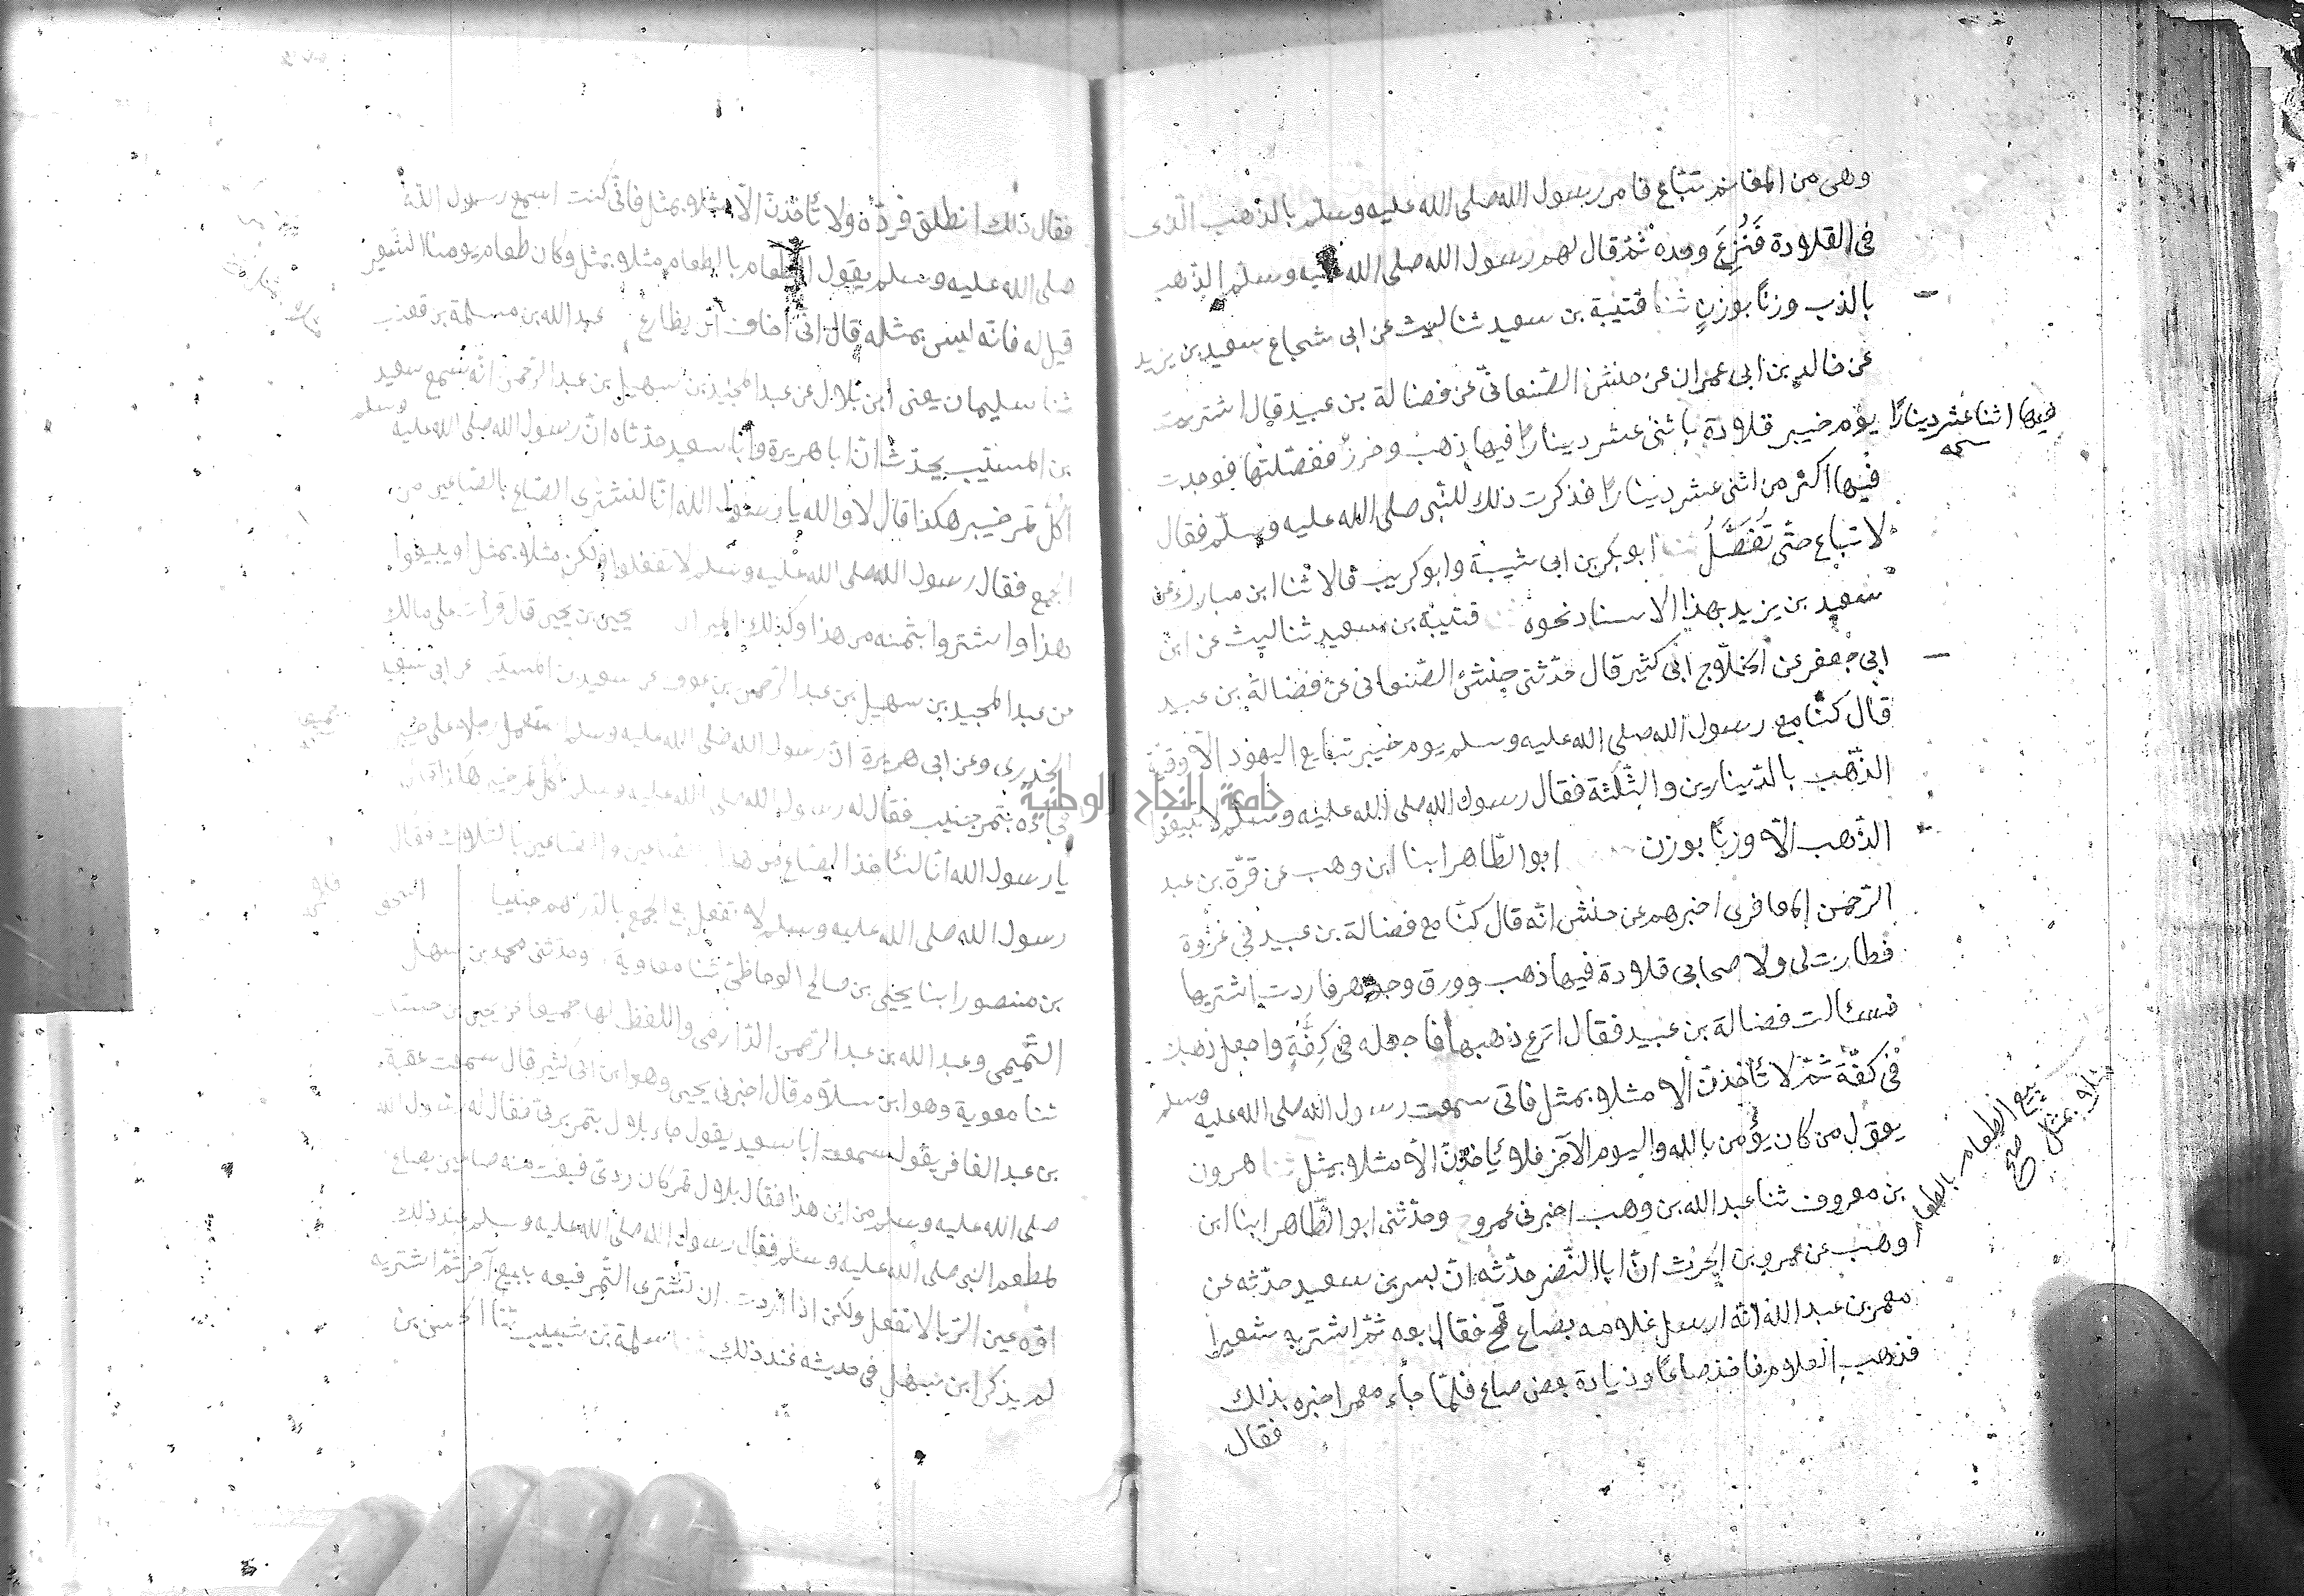 وهى من المغانم تباع فامر رسول الله صلى الله عليه وسلم بالذهب الذى
فى القلادة فَنُزِعَ وحده ثم قال لهم رسول الله صلى الله عليه وسلم الذهب
بالذهب وزنًا بوزنٍ ثنا قتيبة بن سعيد ثنا ليث عن ابى شجاع سعيد بن يزيد
عن خالد بن ابى عمران عن حنش الصنعانى عن فضالة بن عبيد قال اشتريت
يوم خيبر قلادة باثنى عشر دينارًا فيها ذهب وخرز ففصلتها فوجدت
فيها اثنا عشر دينارًا
فيها اكثر من اثنى عشر دينارًا فذكرت ذلك للنبى صلى الله عليه وسلم فقال
لا تباع حتى تُفَصَّلَ ثنا ابو بكر بن ابى شيبة وابو كريب قالا ثنا ابن مبارك عن
سعيد بن يزيد بهذا الاسناد نحوه قتيبة بن سعيد ثنا ليث عن ابن
ابى جعفر عن الجلاح ابى كثير قال حدثنى حنش الصنعانى عن فضالة بن عبيد
قال كنا مع رسول الله صلى الله عليه وسلم يوم خيبر نبايع اليهود الاوقية
الذهب بالدينارين والثلثة فقال رسول الله صلى الله عليه وسلم لا تبيعوا
الذهب الا وزنًا بوزن ابو الطاهر ابنا ابن وهب عن قرة بن عبد
الرحمن المعافرى اخبرهم عن حنش انه قال كنا مع فضالة بن عبيد فى غزوة
فطارت لى ولاصحابى قلادة فيها ذهب وورق وجوهر فاردت اشتريها
فسئالت فضالة بن عبيد فقال انزع ذهبها فاجعله فى كفة واجعل ذهبك
فى كفة ثم لا تأخذن الا مثلا بمثل فانى سمعت رسول الله صلى الله عليه وسلم
يقول من كان يؤمن بالله واليوم الآخر فلا يأخذن الا مثلا بمثل ثنا هرون
بيع الطعام بالطعام
مثلا بمثل
بن معروف ثنا عبد الله بن وهب اخبرنى عمرو وحدثنى ابو الطاهر ابنا ابن
وهب عن عمرو بن الحرث ان ابا النضر حدثه ان بسر بن سعيد حدثه عن
معمر بن عبد الله انه ارسل غلامه بصاع قمح فقال بعه ثم اشتر به شعيرا
فذهب الغلام فاخذ صاعًا وزيادة بعض صاع فلما جاء معمر اخبره بذلك
فقال
فقال ذلك انطلق فرده ولا تأخذن الا مثلا بمثل فانى كنت اسمع رسول الله
صلى الله عليه وسلم يقول الطعام بالطعام مثلا بمثل وكان طعام يومنا الشعير
قيل له فانه ليس بمثله قال انى اخاف ان يضارع عبد الله بن مسلمة بن قعنب
ثنا سليمان يعنى ابن بلال عن عبد المجيد بن سهيل بن عبد الرحمن انه سمع سعيد
بن المسيب يحدث ان ابا هريرة وابا سعيد حدثاه ان رسول الله صلى الله عليه وسلم
اكل تمر خيبر هكذا قال لا والله يا رسول الله انا لنشترى الصاع بالصاعين من
الجمع فقال رسول الله صلى الله عليه وسلم لا تفعلوا ولكن مثلا بمثل او بيعوا
هذا واشتروا بثمنه من هذا وكذلك الميزان يحيى بن يحيى قال قرأت على مالك
عن عبد المجيد بن سهيل بن عبد الرحمن بن عوف عن سعيد بن المسيب عن ابى سعيد
الخدرى وعن ابى هريرة ان رسول الله صلى الله عليه وسلم استعمل رجلا على خيبر
فجاءه بتمر جنيب فقال له رسول الله صلى الله عليه وسلم اكل تمر خيبر هكذا قال
يا رسول الله انا لنأخذ الصاع من هذا بالصاعين والصاعين بالثلاث فقال
رسول الله صلى الله عليه وسلم لا تفعل بع الجمع بالدرهم جنيبا
بن منصور ابنا يحيى بن صالح الوحاظى ثنا معاوية وحدثنى محمد بن سهل
التميمى وعبد الله بن عبد الرحمن الدارمى واللفظ لها جميعا عن يحيى بن حسان
ثنا معوية وهو ابن سلام قال اخبرنى يحيى وهو ابن ابى كثير قال سمعت عقبة
بن عبد الغافر يقول سمعت ابا سعيد يقول جاء بلال بتمر برنى فقال له رسول الله
صلى الله عليه وسلم من اين هذا فقال بلال تمر كان ردى فبعت منه صاعين بصاع
لمطعم النبى صلى الله عليه وسلم فقال رسول الله صلى الله عليه وسلم عند ذلك
اوه عين الربا لا تفعل ولكن اذا اردت ان تشترى التمر فبعه ببيع آخر ثم اشتر به
لم يذكر ابن سهل فى حديثه عند ذلك ثنا سلمة بن شبيب ثنا الحسن بن
جامعة النجاح الوطنية